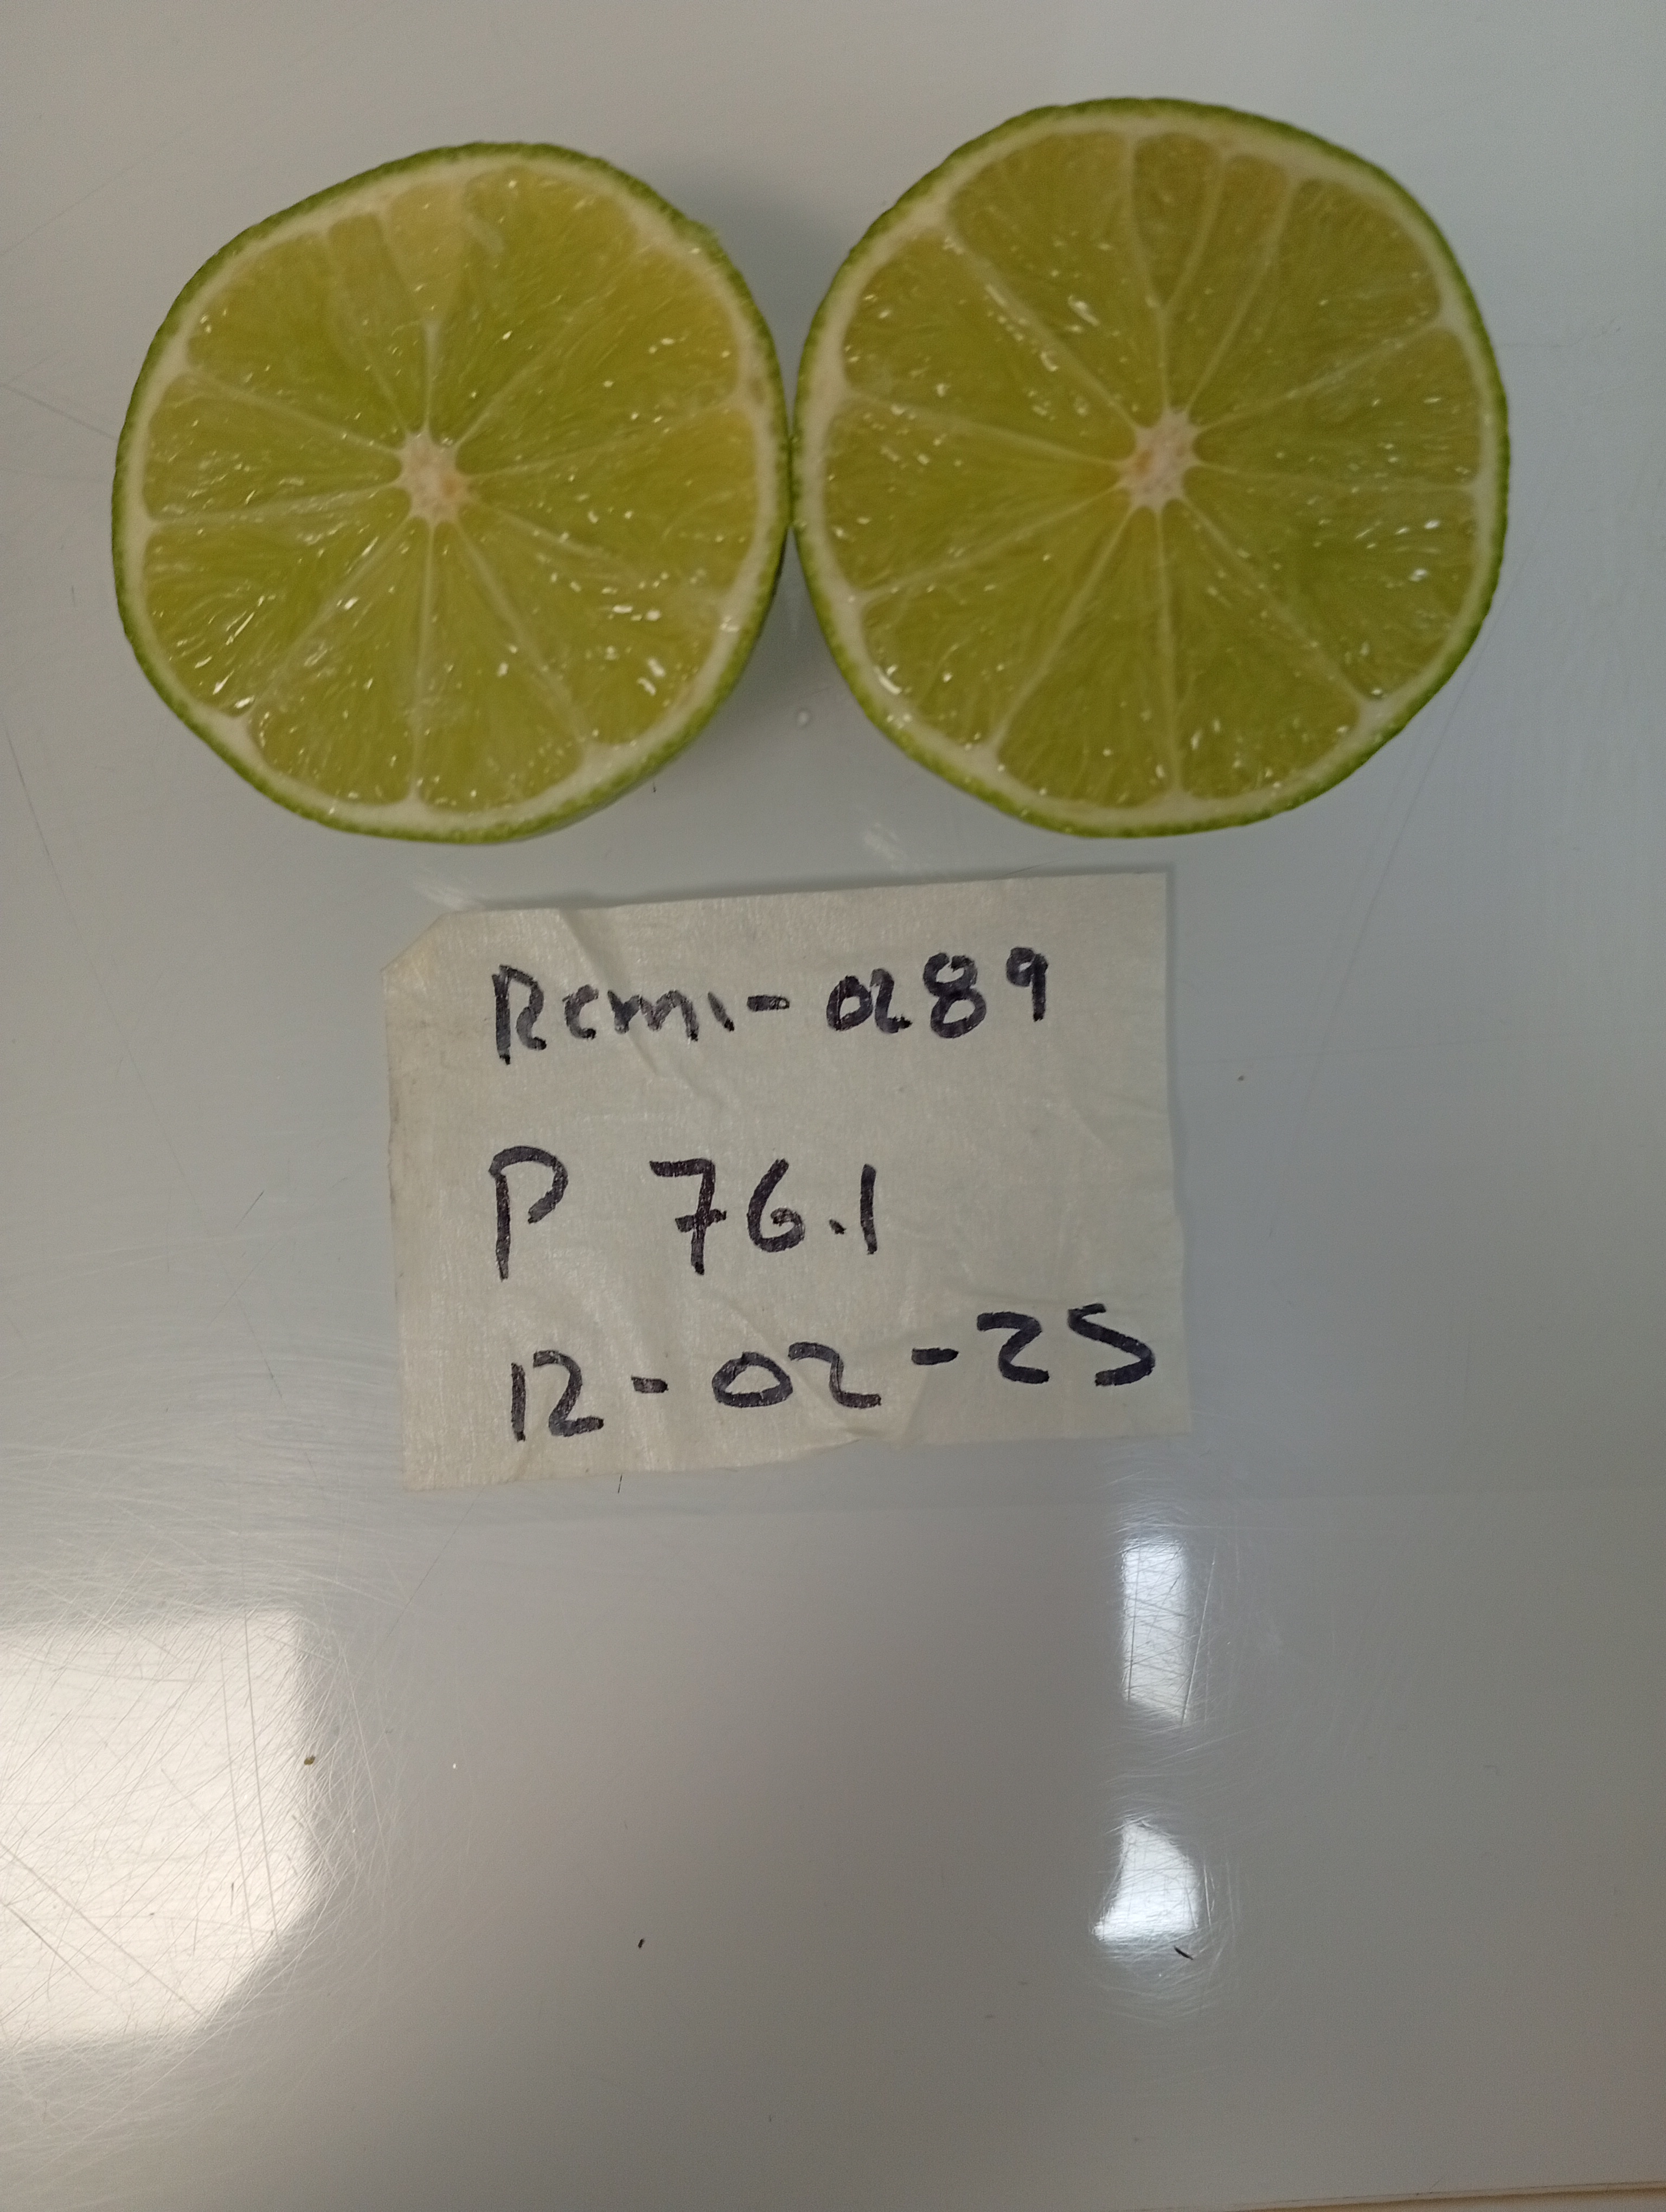 Remi-0289
P 76.1
12-02-25